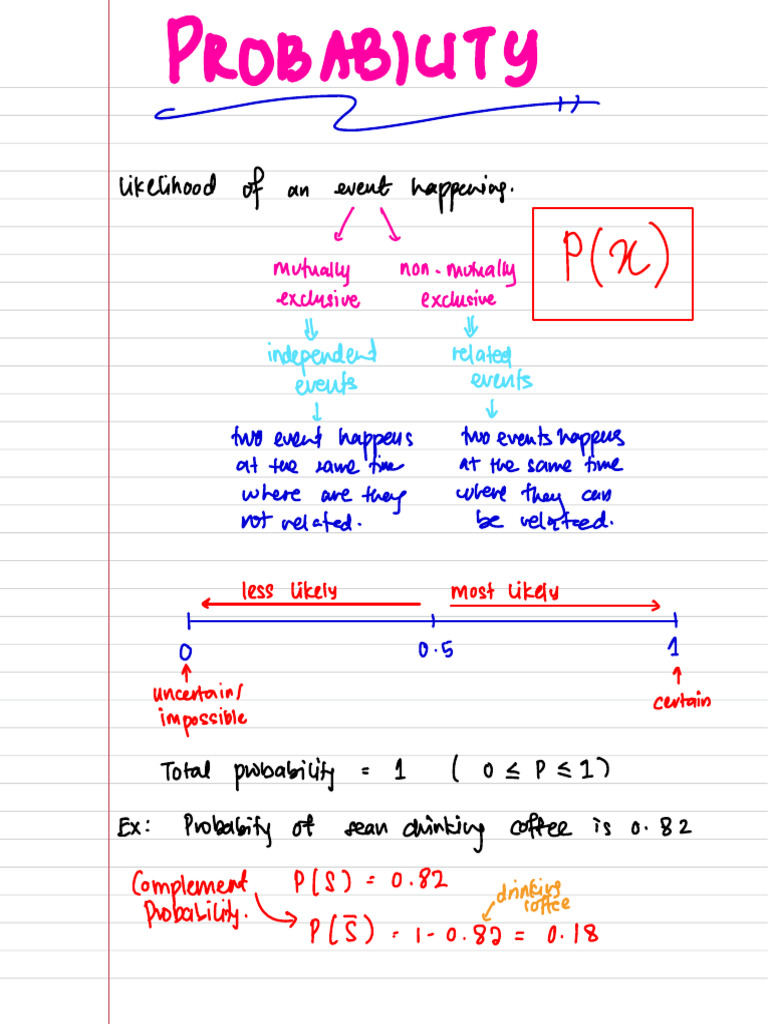 PROBABILITY
Likelihood of an event happening.
P(x)
mutually
exclusive
non-mutually
exclusive
independent
events
related
events
two event happens
at the same time
where are they
not related.
two events happens
at the same time
where they can
be relateed.
less likely
most likely
0
0.5
1
uncertain/
impossible
certain
Total probability = 1 ( 0 ≤ P ≤ 1 )
Ex: Probabity of sean drinking coffee is 0.82
Complement
Probability.
P(S) = 0.82
drinking
coffee
P(S̄) = 1 - 0.82 = 0.18